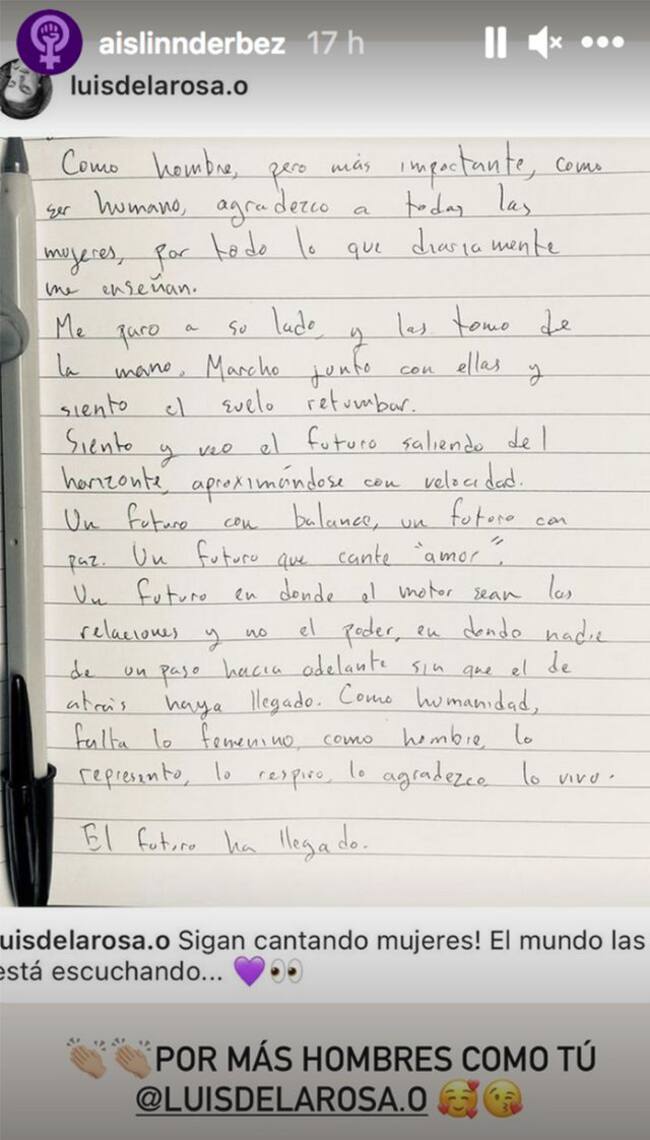 aislinnderbez 17 h
luisdelarosa.o
Como hombre, pero más importante, como
ser humano, agradezco a todas las
mujeres, por todo lo que diariamente
me enseñan.
Me paro a su lado, y las tomo de
la mano. Marcho junto con ellas y
siento el suelo retumbar.
Siento y veo el futuro saliendo del
horizonte, aproximándose con velocidad.
Un futuro con balance, un futuro con
paz. Un futuro que cante "amor".
Un futuro en donde el motor sean las
relaciones y no el poder, en dondo nadie
de un paso hacia adelante sin que el de
atrás haya llegado. Como humanidad,
falta lo femenino, como hombre, lo
represento, lo respiro, lo agradezco, lo vivo.
El futuro ha llegado.
uisdelarosa.o Sigan cantando mujeres! El mundo las
está escuchando... 💜👀
👏🏼👏🏼POR MÁS HOMBRES COMO TÚ
@LUISDELAROSA.O 🥰😘